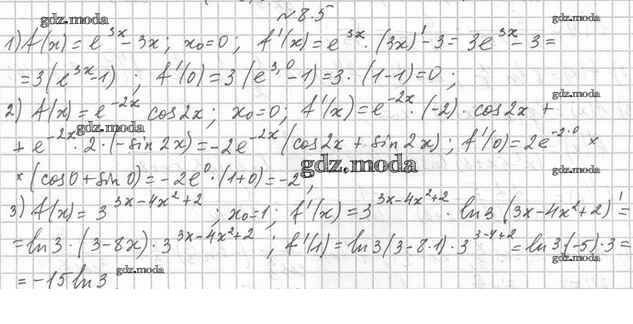 №8.5
gdz.moda gdz.moda
1) f(x) = e^{3x} - 3x; x₀=0, f'(x) = e^{3x}·(3x)' - 3 = 3e^{3x} - 3 =
= 3(e^{3x} - 1); f'(0) = 3(e^{3,0} - 1) = 3·(1-1) = 0;
gdz.moda
2) f(x) = e^{-2x} cos2x; x₀=0, f'(x) = e^{-2x}·(-2)·cos2x +
gdz.moda gdz.moda
+ e^{-2x}·2·(-sin2x) = -2e^{-2x}(cos2x + sin2x); f'(0) = 2e^{-2·0} ×
gdz.moda gdz.moda
× (cos0 + sin0) = -2e^{0}·(1+0) = -2;
3) f(x) = 3^{3x-4x²+2}; x₀=1; f'(x) = 3^{3x-4x²+2}·ln3(3x-4x²+2)' =
gdz.moda
= ln3·(3-8x)·3^{3x-4x²+2}; f'(1) = ln3(3-8·1)·3^{3-4+2} = ln3(-5)·3 =
gdz.moda gdz.moda
= -15 ln3